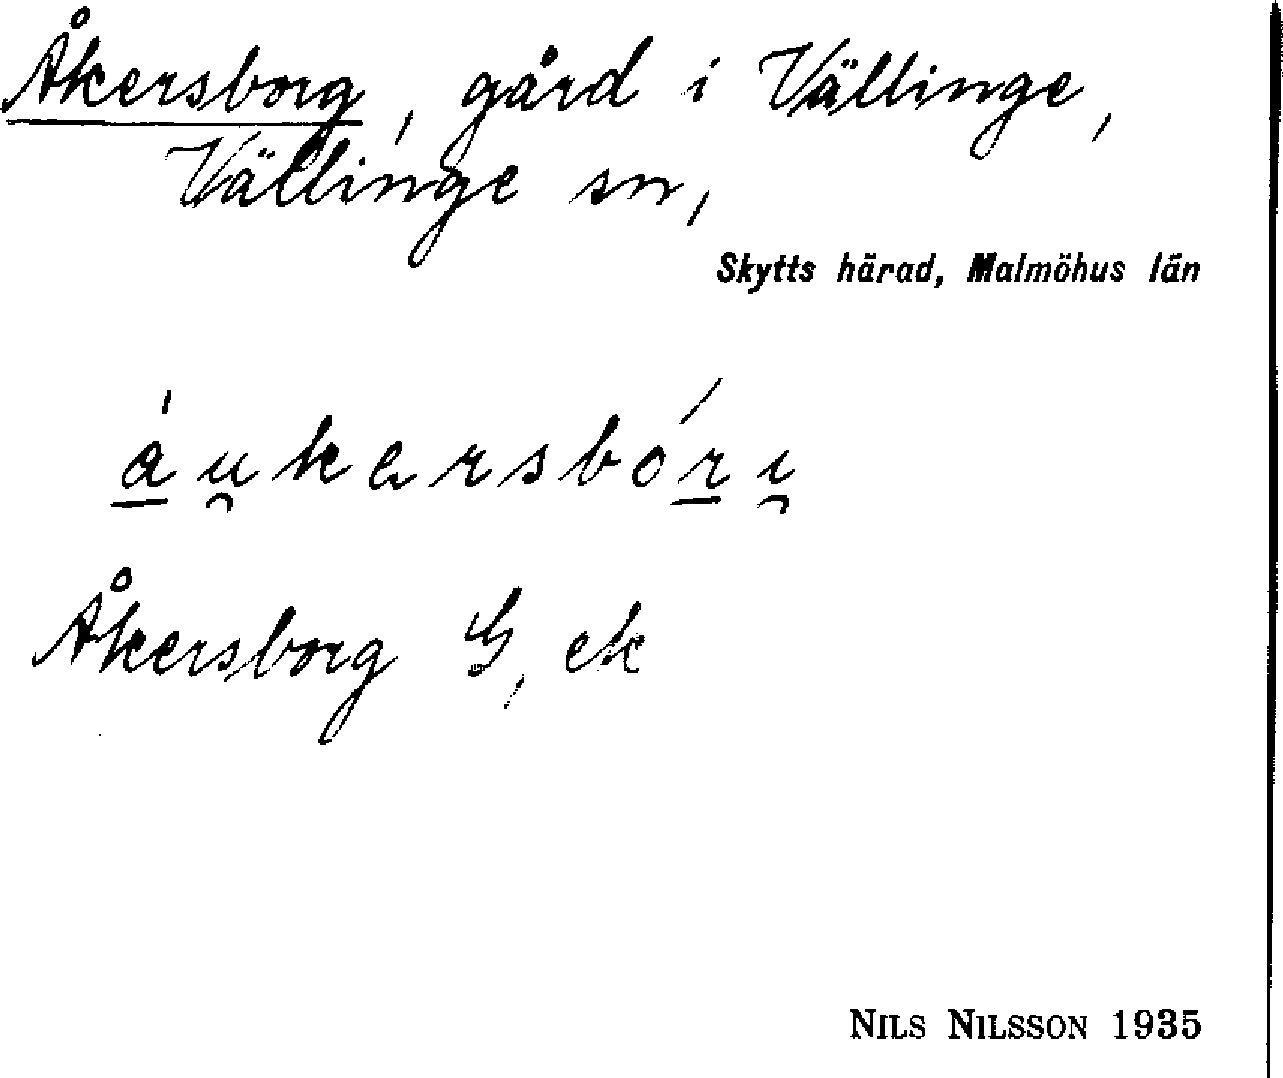 Åkersborg, gård i Vällinge,
Vällinge sn,
Skytts härad, Malmöhus län
áu̯kersbórı̯
Åkersborg G, ek
NILS NILSSON 1935